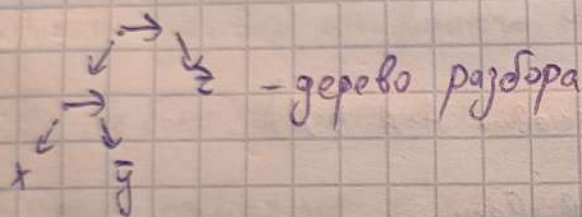 →
z - дерево разбора
→
x ȳ